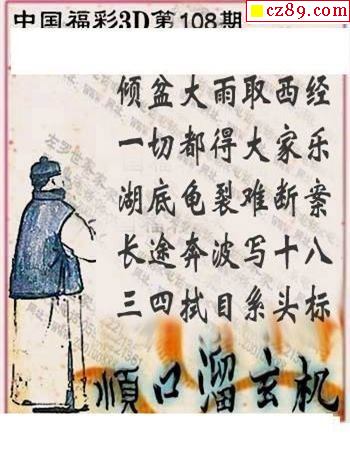 中国福彩3D第108期
cz89.com
倾盆大雨取西经
一切都得大家乐
湖底龟裂难断案
长途奔波写十八
三四拭目系头标
顺口溜玄机